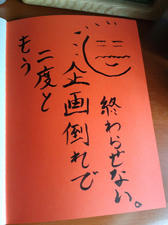 もう
二度と
…企画倒れで
終わらせない。